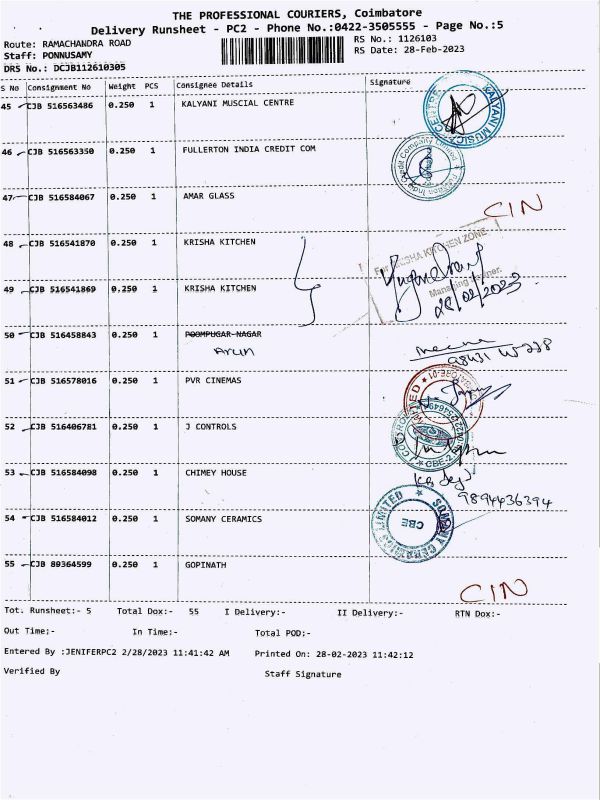 THE PROFESSIONAL COURIERS, Coimbatore
Delivery Runsheet - PC2 - Phone No.:0422-3505555 - Page No.:5
Route: RAMACHANDRA ROAD
RS No.: 1126103
Staff: PONNUSAMY
RS Date: 28-Feb-2023
DRS No.: DCJB112610305
S No Consignment No Weight PCS Consignee Details Signature
45 CJB 516563486 0.250 1 KALYANI MUSCIAL CENTRE
KALYANI MUSIC CENTRE
46 CJB 516563350 0.250 1 FULLERTON INDIA CREDIT COM
India Credit Company Limited
47 CJB 516584067 0.250 1 AMAR GLASS
CIN
48 CJB 516541870 0.250 1 KRISHA KITCHEN
For KRISHA KITCHEN ZONE
49 CJB 516541869 0.250 1 KRISHA KITCHEN
Managing Partner.
28/02/2023
50 CJB 516458843 0.250 1 POOMPUGAR-NAGAR
Arun
51 CJB 516578016 0.250 1 PVR CINEMAS
52 CJB 516406781 0.250 1 J CONTROLS
CBE-2
53 CJB 516584098 0.250 1 CHIMEY HOUSE
9894436394
54 CJB 516584012 0.250 1 SOMANY CERAMICS
SOMANY CERAMICS LIMITED
CBE
55 CJB 89364599 0.250 1 GOPINATH
CIN
Tot. Runsheet:- 5 Total Dox:- 55 I Delivery:- II Delivery:- RTN Dox:-
Out Time:- In Time:- Total POD:-
Entered By :JENIFERPC2 2/28/2023 11:41:42 AM Printed On: 28-02-2023 11:42:12
Verified By Staff Signature